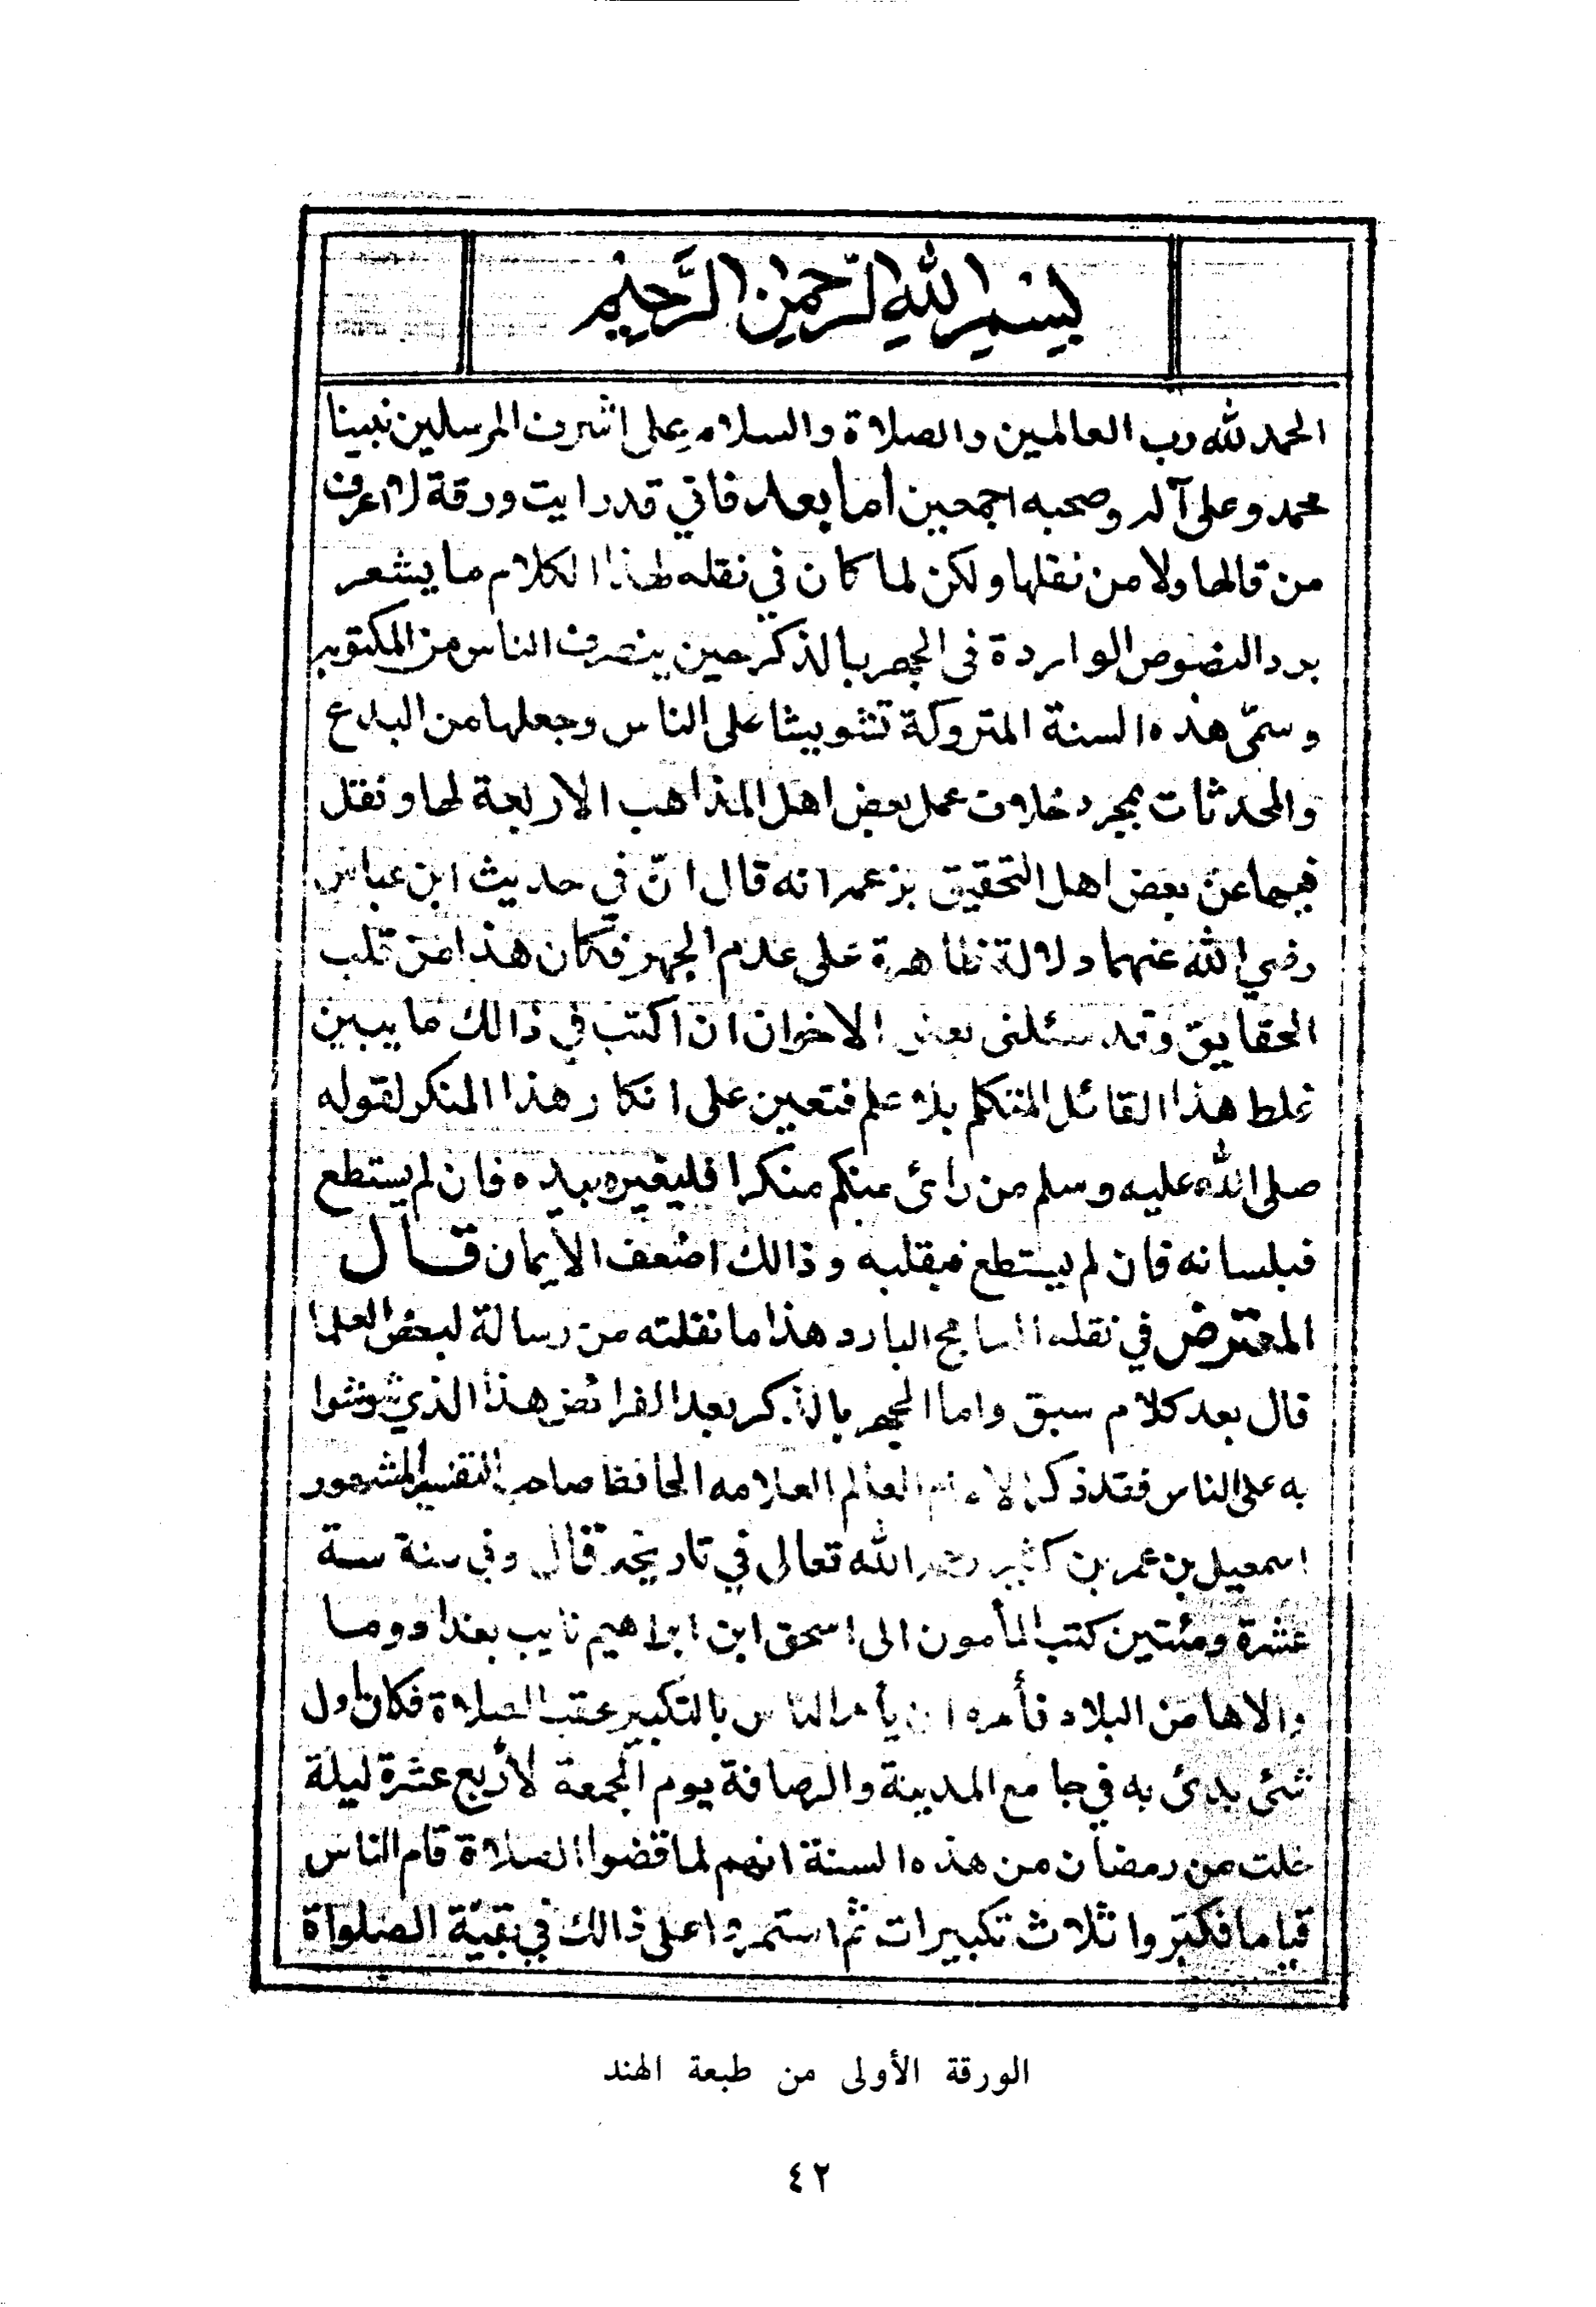 بسم الله الرحمن الرحيم
الحمد لله رب العالمين والصلاة والسلام على اشرف المرسلين نبينا
محمد وعلى آله وصحبه اجمعين اما بعد فاني قد رايت ورقة لا اعرف
من قالها ولا من نقلها ولكن لما كان في نقله لهذا الكلام ما يشعر
برد النصوص الواردة في الجهر بالذكر حين ينصرف الناس من المكتوبه
وسمّى هذه السنة المتروكة تشويشا على الناس وجعلها من البدع
والمحدثات بمجرد خلاف عمل بعض اهل المذاهب الاربعة لها ونقل
فيها عن بعض اهل التحقيق بزعمه انه قال انّ في حديث ابن عباس
رضي الله عنهما دلالة ظاهرة على عدم الجهر فكان هذا من قلب
الحقايق وقد سئلنى بعض الاخوان ان اكتب في ذالك ما يبين
غلط هذا القائل المتكلم بلا علم فتعين على انكار هذا المنكر لقوله
صلى الله عليه وسلم من رأى منكم منكرا فليغيره بيده فان لم يستطع
فبلسانه فان لم يستطع فبقلبه وذالك اضعف الأيمان قال
المعترض في نقله السامج البارد هذا ما نقلته من رسالة لبعض العلما
قال بعد كلام سبق واما الجهر بالذكر بعد الفرائض هذا الذي شوشوا
به على الناس فقد ذكر الامام العالم العلامه الحافظ صاحب التفسير المشهور
اسمعيل بن عمر بن كثير رحمه الله تعالى في تاريخه قال وفي سنة ستة
عشرة ومئتين كتب المأمون الى اسحق ابن ابراهيم نايب بغداد وما
والاها من البلاد فأمره ان يأمر الناس بالتكبير عقب الصلاة فكان اول
شئى بدئ به في جامع المدينة والرصافة يوم الجمعة لأربع عشرة ليلة
خلت من رمضان من هذه السنة انهم لما قضوا الصلاة قام الناس
قياما فكبّروا ثلاث تكبيرات ثم استمروا على ذالك في بقيّة الصلواة
الورقة الأولى من طبعة الهند
٤٢